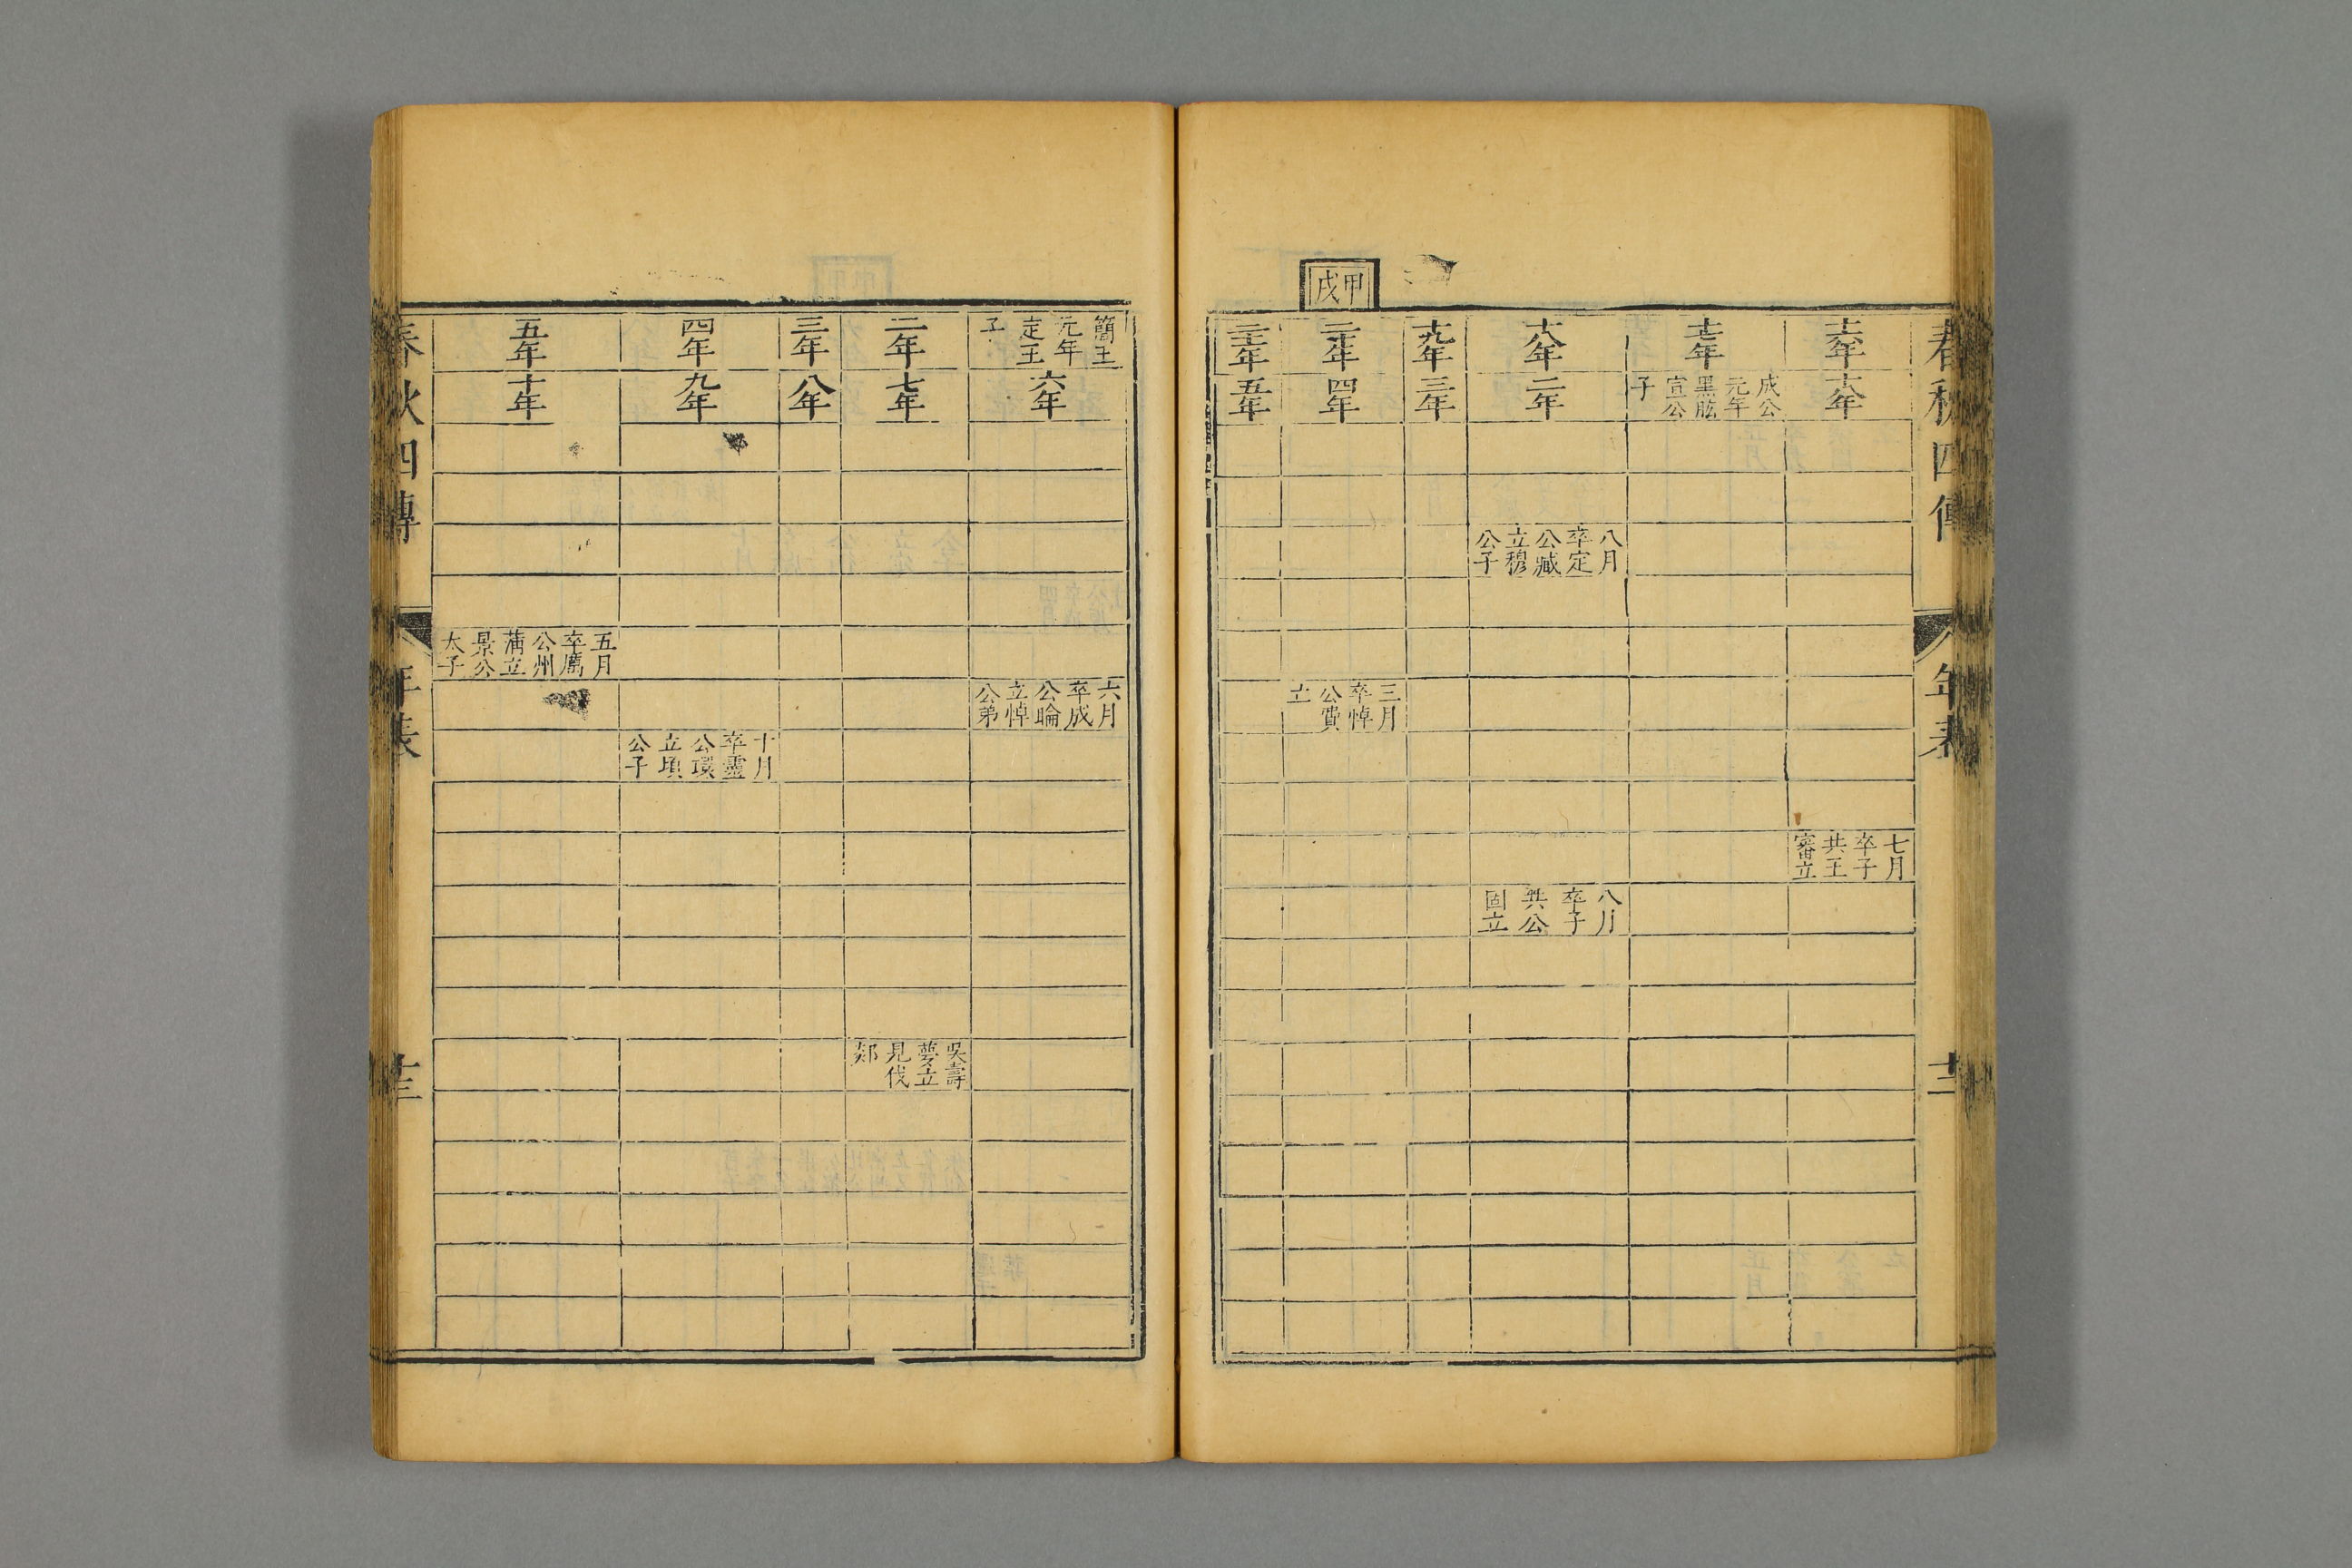 春秋四傳
年表
十二
甲戌
十六年
十八年
七月
卒子
共王
審立
十七年
成公
元年
黑肱
宣公
子
十八年
二年
八月
卒定
公臧
立穆
公子
八月
卒子
共公
固立
十九年
三年
二十年
四年
三月
卒悼
公費
立
二十一年
五年
簡王
元年
定王
子
六年
六月
卒成
公睔
立悼
公弟
二年
七年
吳壽
夢立
見伐
郯
三年
八年
四年
九年
十月
卒靈
公環
立頃
公子
五年
十年
五月
卒厲
公州
蒲立
景公
太子
春秋四傳
年表